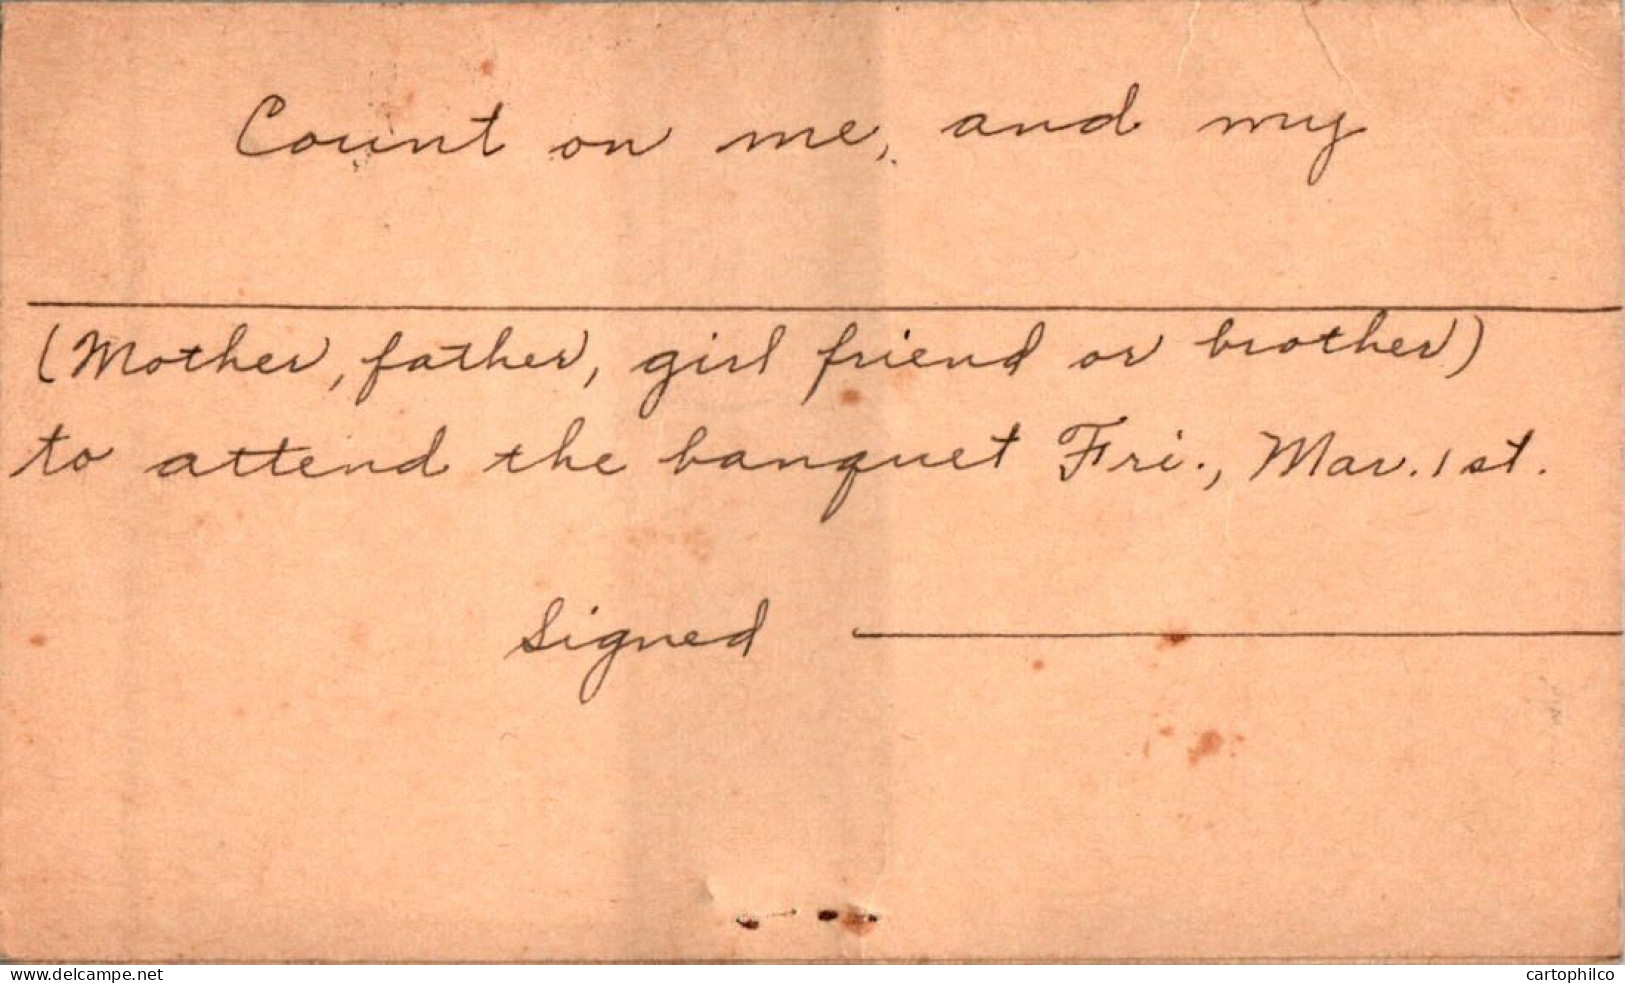 Count on me, and my
(Mother, father, girl friend or brother)
to attend the banquet Fri., Mar. 1st.
Signed
www.delcampe.net
cartophilco